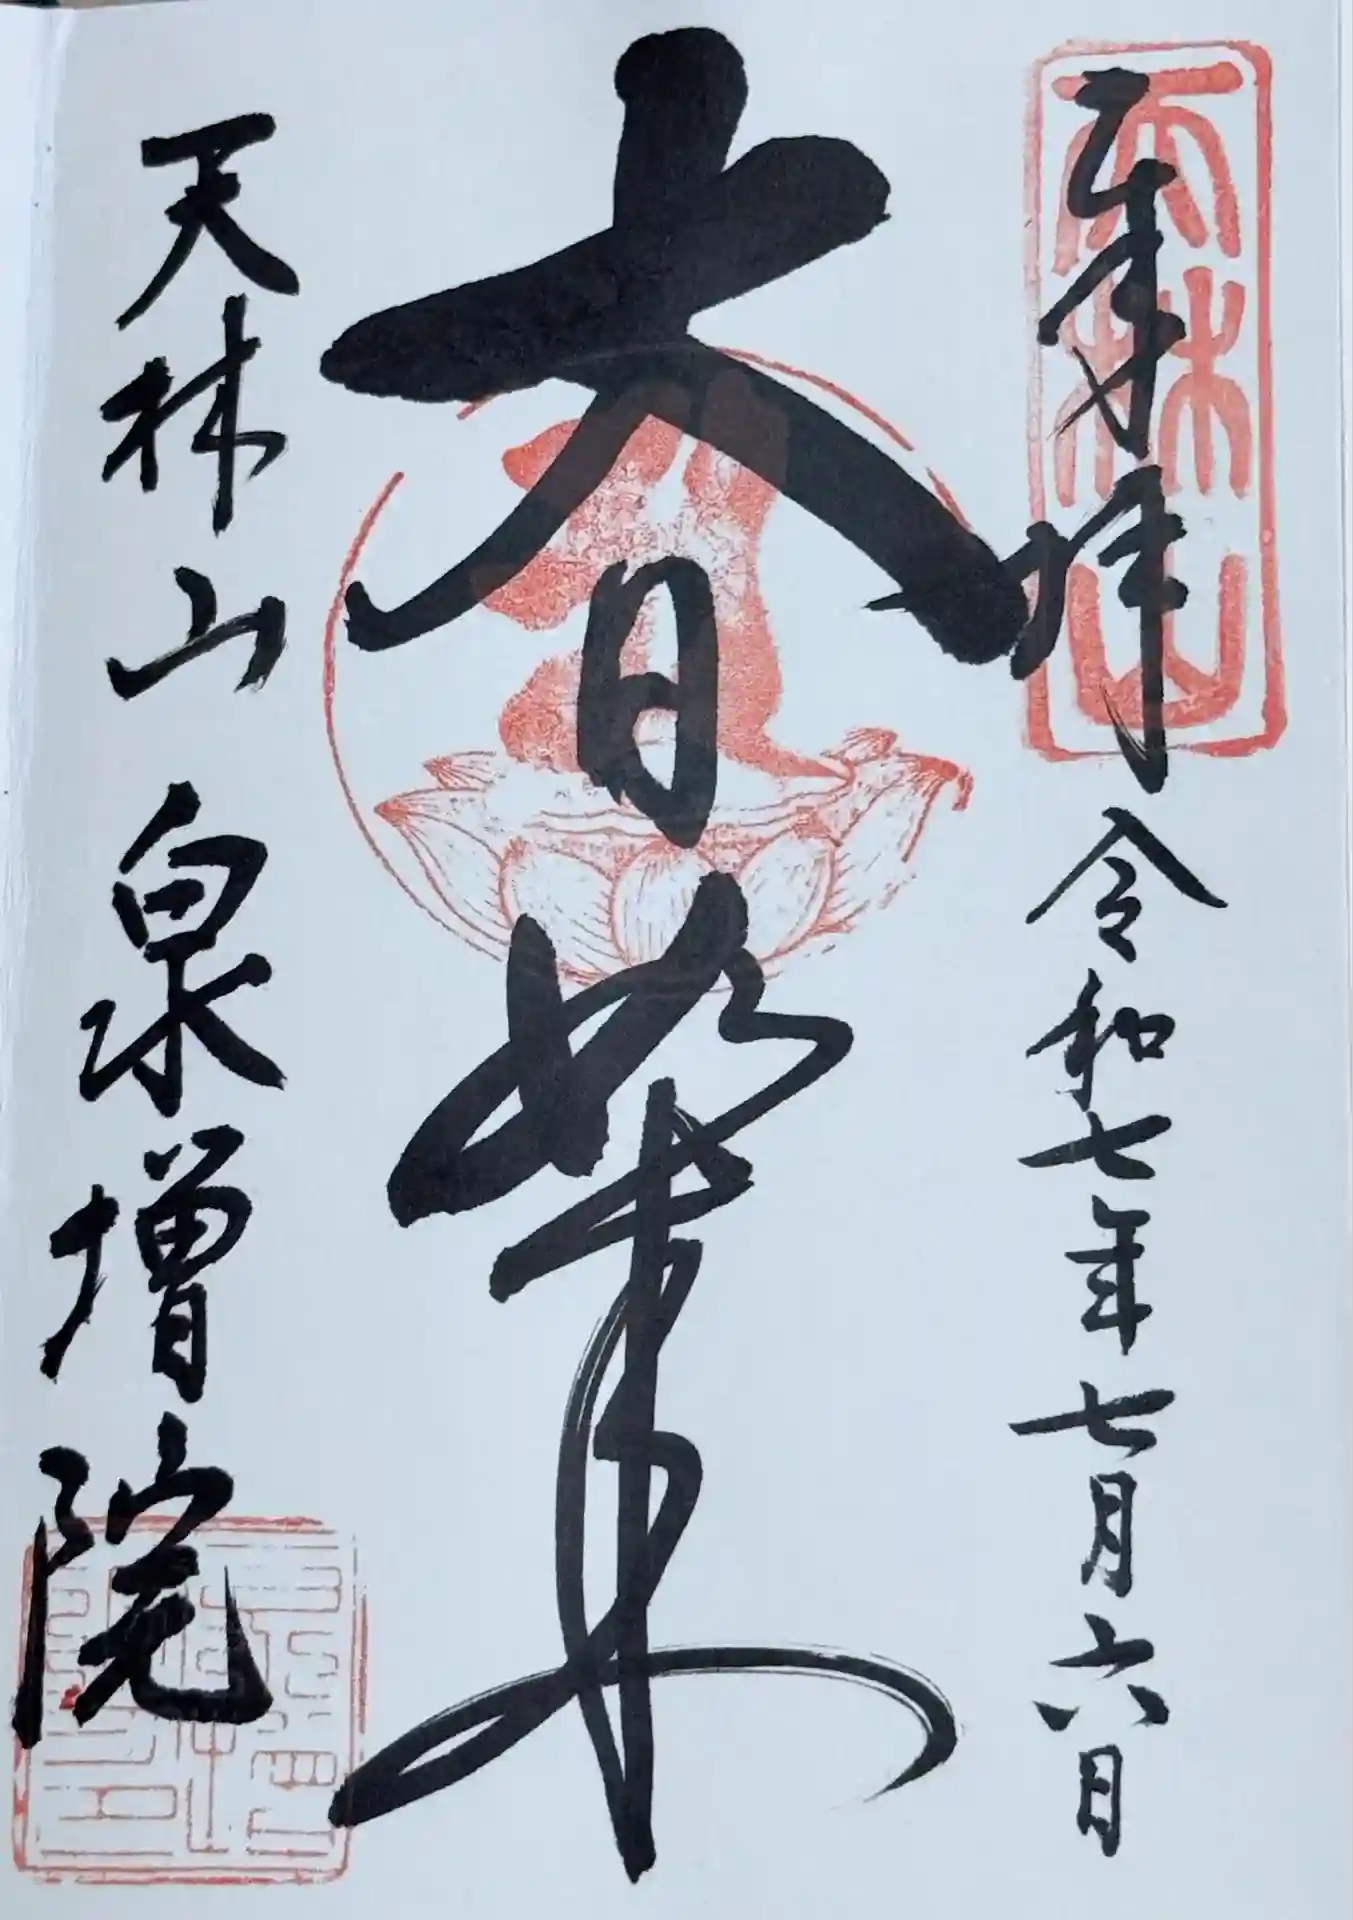 奉拝 令和七年七月六日
天林山
大日如来
天林山 泉増院